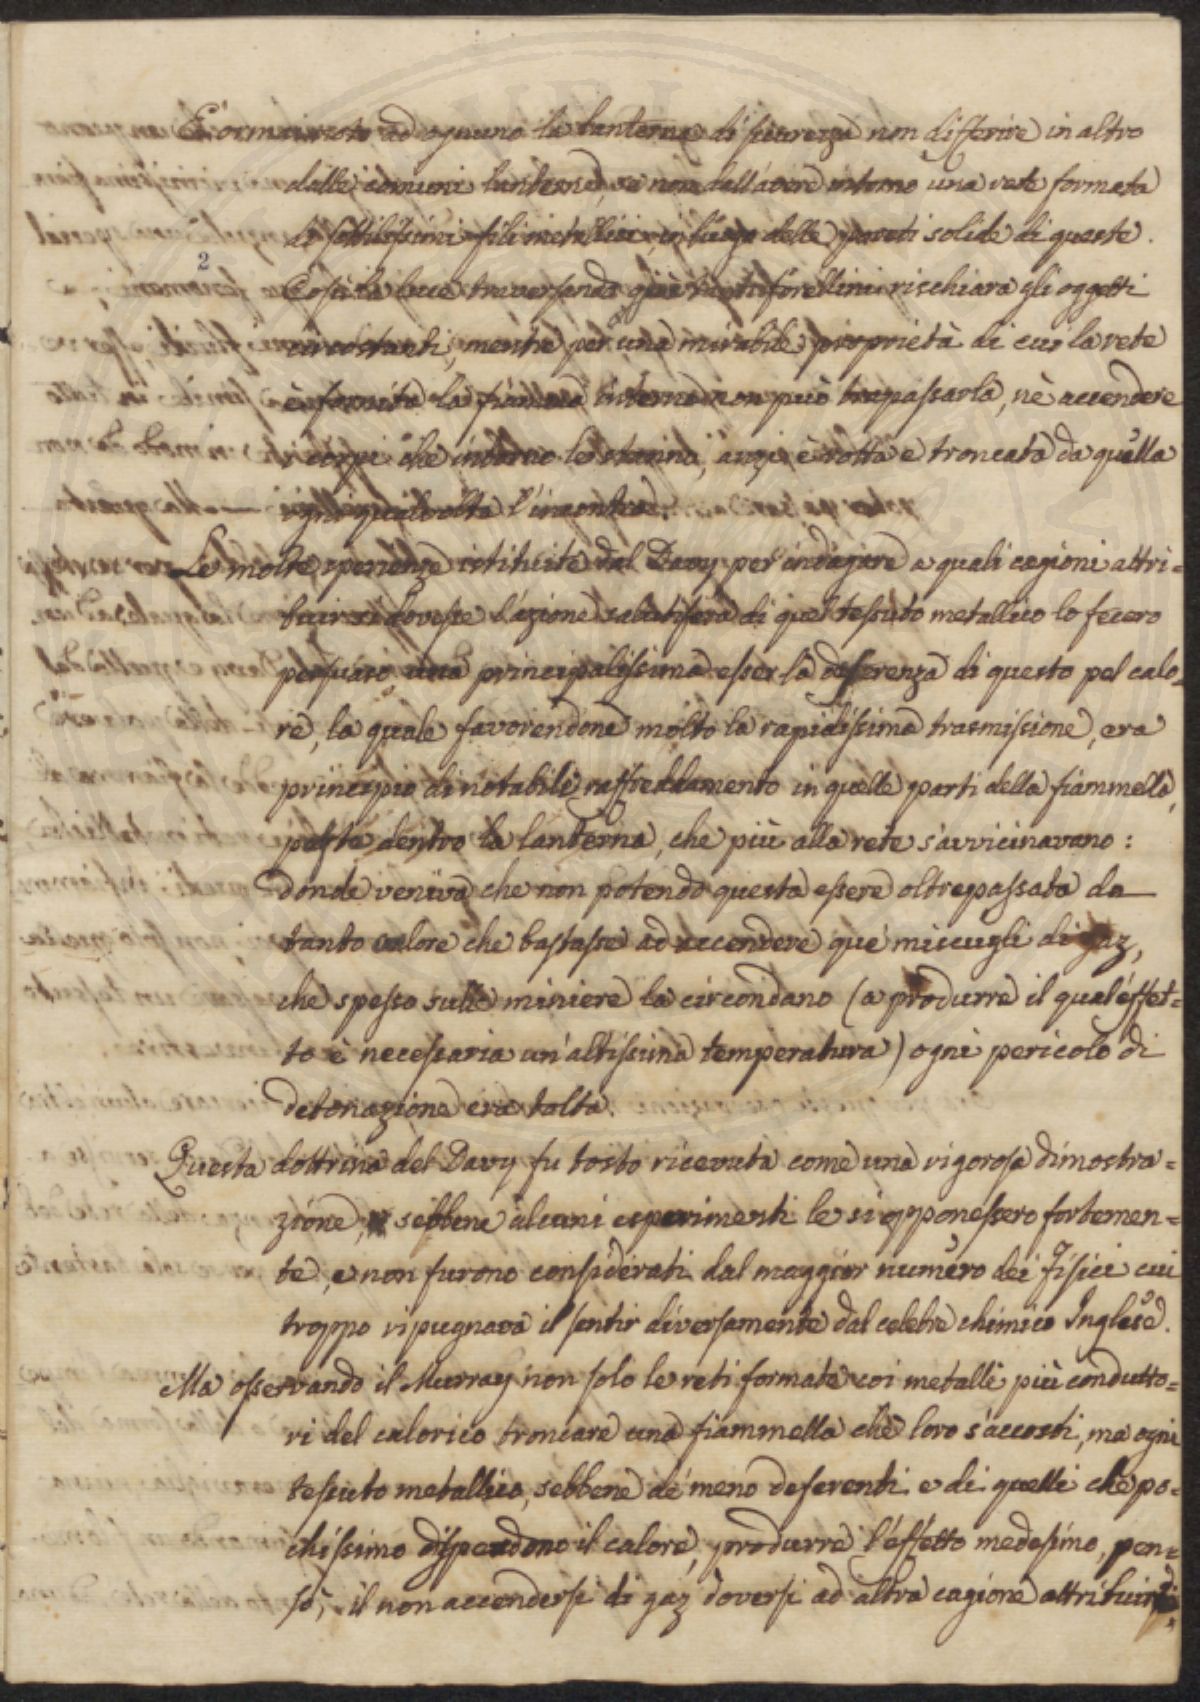 È ormai noto ad ognuno la lanterna di sicurezza non differire in altro
dalle comuni lanterne, se non dall'avere intorno una rete formata
di sottilissimi fili metallici, in luogo delle pareti solide di queste.
2
Così la luce traversando que' tanti forellini rischiara gli oggetti
circostanti, mentre per una mirabile proprietà di cui la rete
è fornita la fiamma interna non può trapassarla, nè accendere
i corpi che intorno le stanno, anzi è rotta e troncata da quella
ogni qualvolta l'incontra.
Le molte sperienze istituite dal Davy per indagare a quali cagioni attri=
buir si dovesse l'azione salutifera di quel tessuto metallico lo fecero
persuaso una principalissima esser la deferenza di questo pel calo=
re, la quale favorendone molto la rapidissima trasmissione, era
principio di notabile raffreddamento in quelle parti della fiammella,
posta dentro la lanterna, che più alla rete s'avvicinavano:
donde veniva che non potendo questa essere oltrepassata da
tanto calore che bastasse ad accendere que' miscugli di gaz,
che spesso sulle miniere la circondano (a produrre il qual effet=
to è necessaria un'altissima temperatura) ogni pericolo di
detonazione era tolta.
Questa dottrina del Davy fu tosto ricevuta come una rigorosa dimostra=
zione, sebbene alcuni esperimenti le si opponessero fortemen=
te, e non furono considerati dal maggior numero dei fisici cui
troppo ripugnava il sentir diversamente dal celebre chimico Inglese.
Ma osservando il Murray non solo le reti formate coi metalli più condutto=
ri del calorico troncare una fiammella che loro s'accosti, ma ogni
tessuto metallico, sebbene de' meno deferenti e di quelli che po=
chissimo disperdono il calore, produrre l'effetto medesimo, pen=
sò, il non accendersi di gaz doversi ad altra cagione attribuirsi